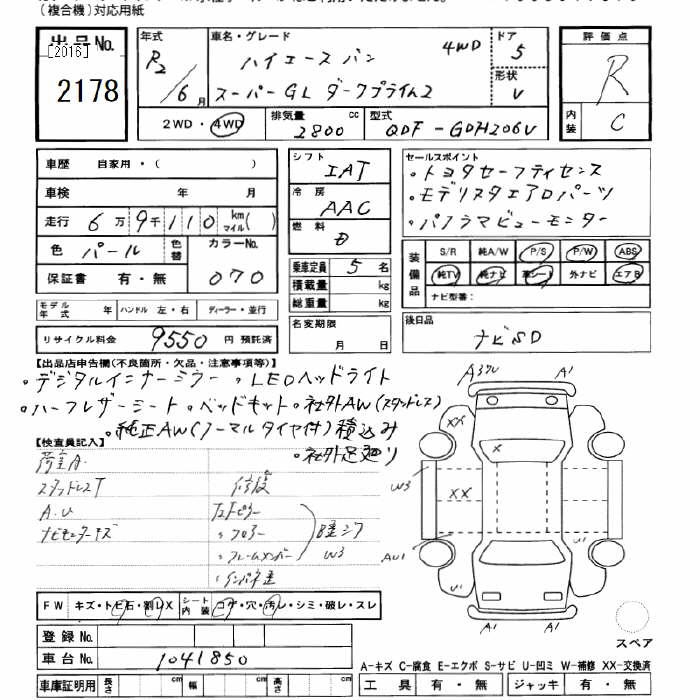 (複合機)対応用紙
出品No.
[2016]
2178
年式
R2/6月
車名・グレード
ハイエースバン 4WD
スーパーGL ダークプライム2
ドア
5
形状
V
評価点
R
内装
C
2WD・4WD
排気量
2800 cc
型式
QDF-GDH206V
車歴 自家用・( )
車検 年 月
走行 6万9千110 km マイル( )
色 パール 色替
カラーNo.
070
保証書 有・無
モデル年式 年 ハンドル 左・右 ディーラー・並行
リサイクル料金 9550 円 預託済
シフト
IAT
冷房
AAC
燃料
D
乗車定員 5 名
積載量 kg
総重量 kg
名変期限
月 日
セールスポイント
・トヨタセーフティセンス
・モデリスタエアロパーツ
・パノラマビューモニター
装備品
S/R 純A/W P/S P/W ABS
純TV 純ナビ 革シート 外ナビ エアB
ナビ型番:
後日品
ナビSD
【出品店申告欄(不良箇所・欠品・注意事項等)】
・デジタルインナーミラー ・LEDヘッドライト
・ハーフレザーシート ・ベッドキット ・社外AW(スタッドレス)
・純正AW(ノーマルタイヤ付)積込み
・社外足廻り
【検査員記入】
荷室A
スタッドレスT
A.U
ナビモニターキズ
修復
〃フロアー
〃フレームメンバー
W3
FW キズ・トビ石・割レX
シート内装 コゲ・穴・汚レ・シミ・破レ・スレ
登録No.
車台No. 1041850
車庫証明用 長さ cm 幅 cm 高さ cm
A1
XX
X
W3
XX
U1
AU1
U1
A1
A1
スペア
A-キズ C-腐食 E-エクボ S-サビ U-凹ミ W-補修 XX-交換済
工具 有・無 ジャッキ 有・無